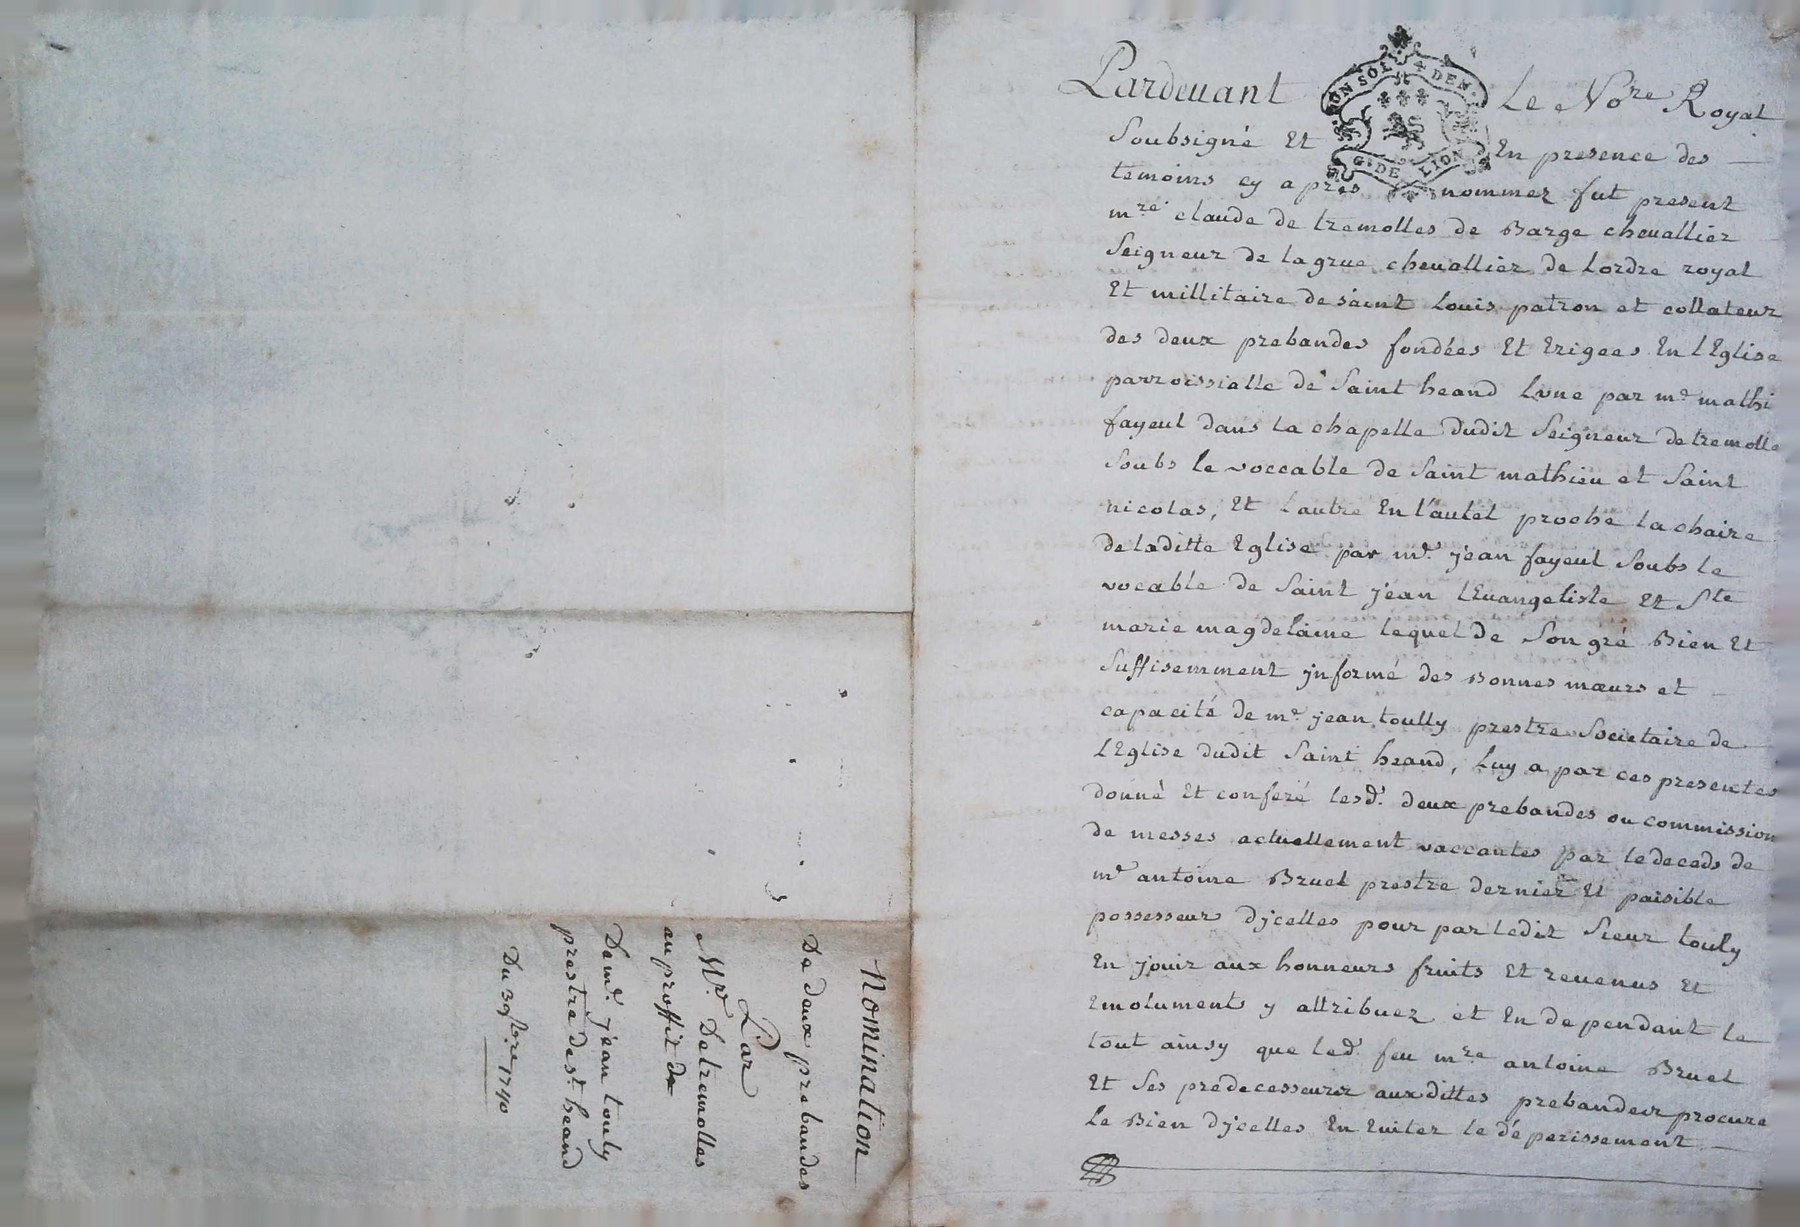 Pardeuant Le No.re Royal
UN SOL 4 DEN.
G. DE LION
Soubsigné Et En presence des
temoins cy apres nommez fut present
m.re claude de tremolles de Barge cheuallier
Seigneur de lagrue cheuallier de Lordre royal
Et millitaire de saint Louis patron et collateur
des deux prebandes fondées Et Erigees En lEglise
parroissialle de Saint heand Lvne par m.e mathi
fayeul dans la chapelle dudit Seigneur de tremolle
Soubs le voccable de Saint mathieu et Saint
nicolas, Et Lautre En l'autel proche la chaire
de laditte Eglise par m.e jean fayeul Soubs le
vocable de Saint jean lEuangeliste Et S.te
marie magdelaine lequel de Son gré Bien Et
Suffisemment jnformé des Bonnes mœurs et
capacité de m.e jean toully prestre Societaire de
lEglise dudit Saint heand, Luy a par ces presentes
donné Et conferé lesd. deux prebandes ou commission
de messes actuellement vaccantes par le deceds de
m.e antoine Bruel prestre dernier Et paisible
possesseur djcelles pour par ledit Sieur touly
En jouir aux honneurs fruits Et reuenus Et
Emoluments y attribuez et En dependant le
tout ainsy que led. feu m.re antoine Bruel
Et Ses predecesseurs auxdittes prebandes procure
Le Bien djcelles En Euiter le déperissement
Nomination
De deux prebandes
Par
M.re Detremolles
au proffit de
De m.e jean touly
prestre de s.t heand
Du 3 9bre 1740